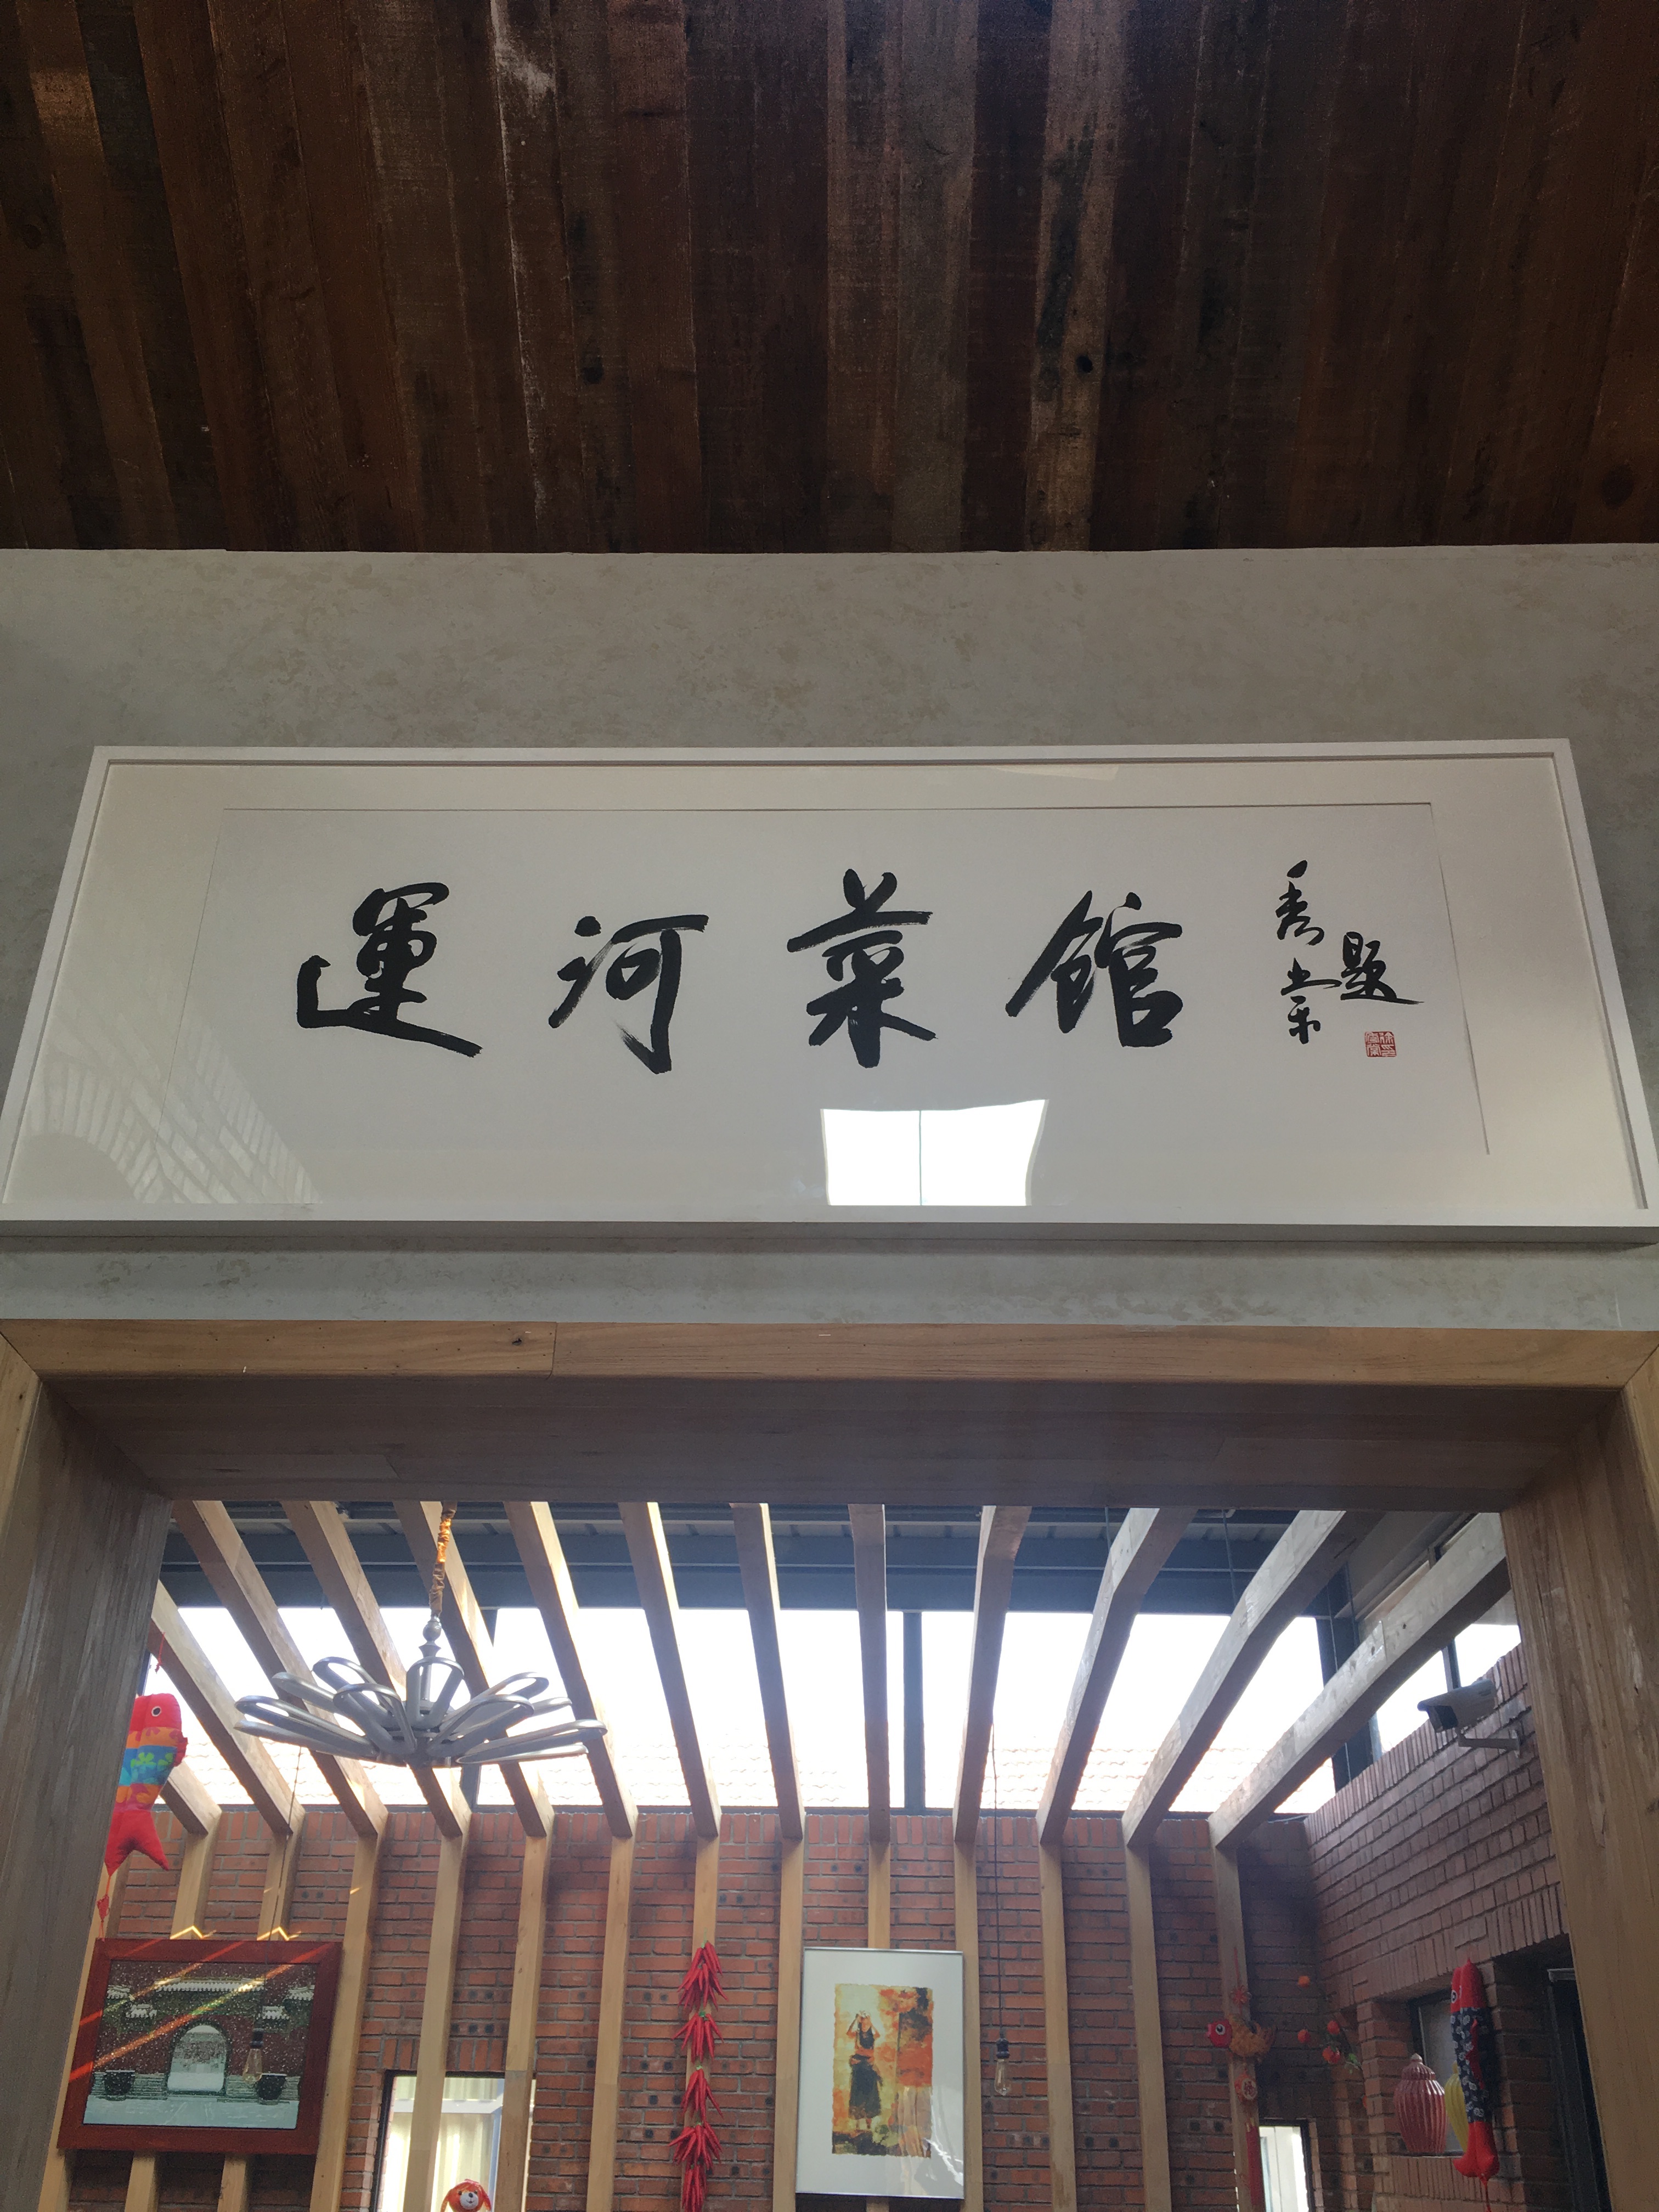 運河菜館
秀棠
題